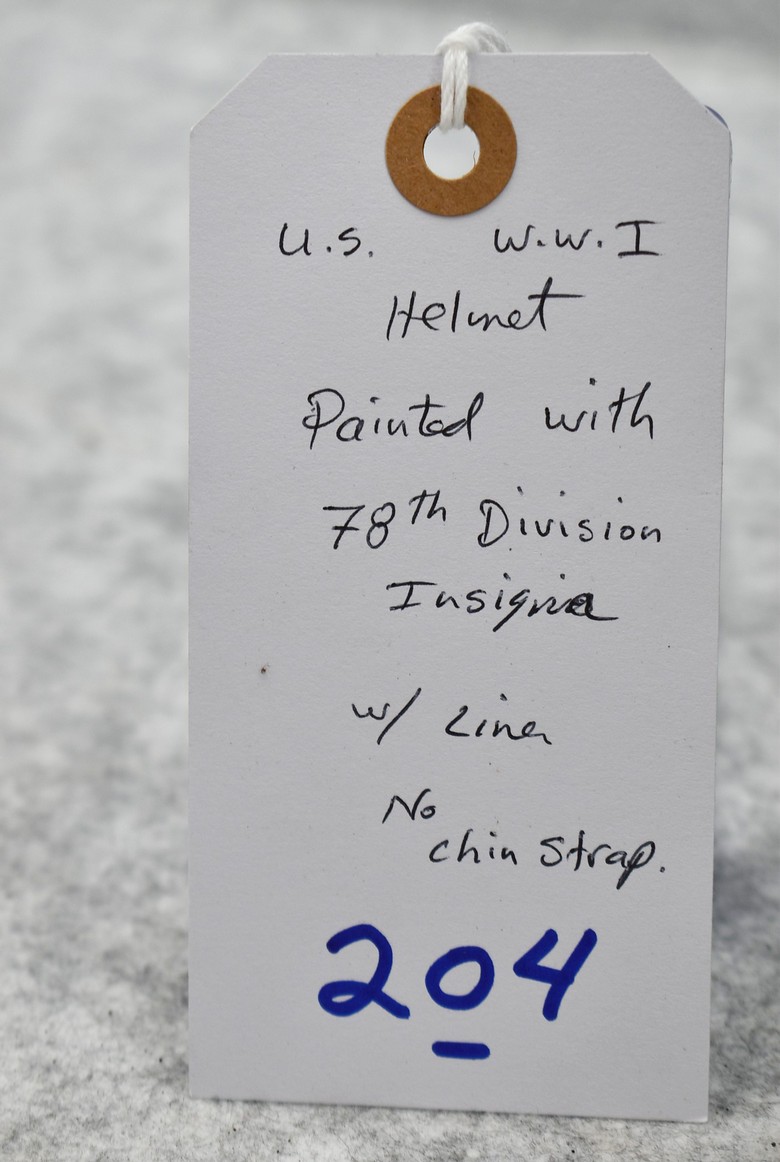 U.S. W.W.I
Helmet
Painted with
78th Division
Insignia
w/ Liner
No
chin strap.
204